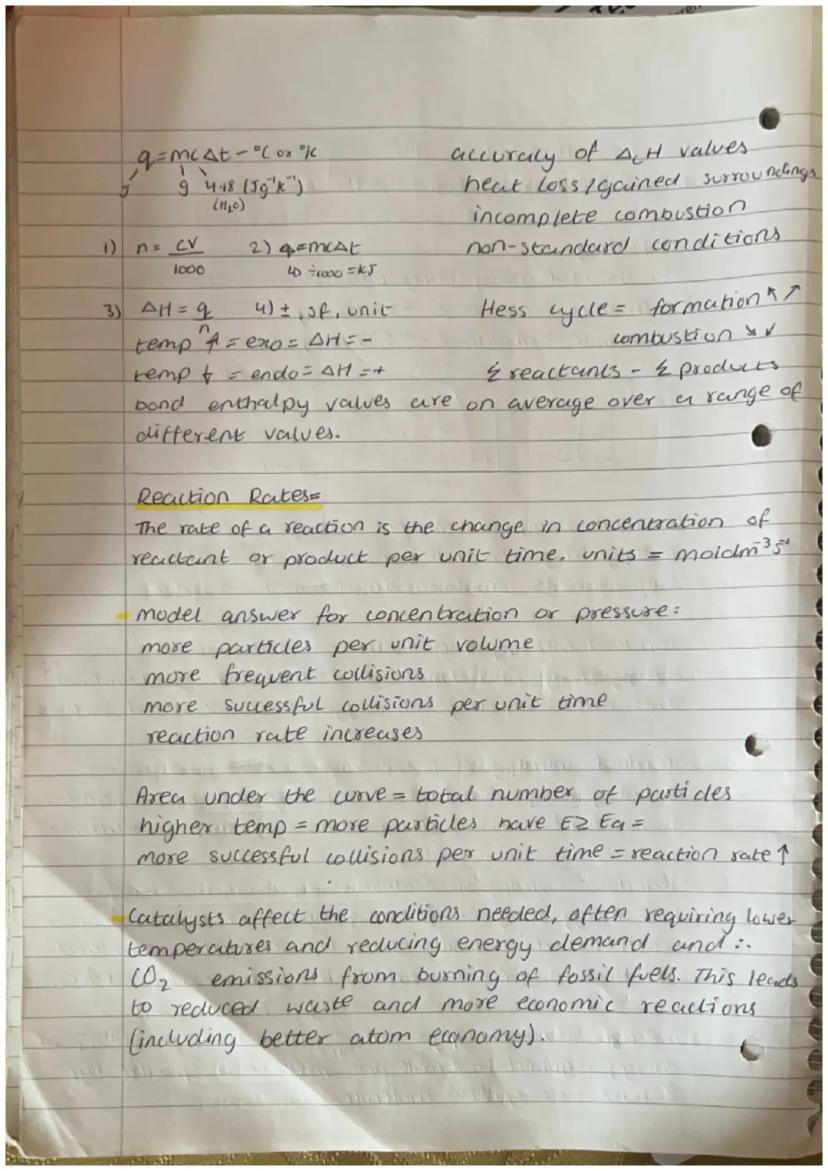 q=mcΔt - °C or °K
J g 4.18 (Jg⁻¹K⁻¹)
(H₂O)
accuracy of ΔcH values
heat loss/gained surroundings
incomplete combustion
non-standard conditions
1) n = CV/1000 2) q=mcΔt
↳ ÷1000 = KJ
3) ΔH = q/n 4) ±, sf, unit
temp ↑ = exo = ΔH = -
temp ↓ = endo = ΔH = +
Hess cycle = formation ↖↗
combustion ↘↙
Σ reactants - Σ products
bond enthalpy values are on average over a range of
different values.
Reaction Rates=
The rate of a reaction is the change in concentration of
reactant or product per unit time. units = moldm⁻³s⁻¹
- model answer for concentration or pressure:
more particles per unit volume
more frequent collisions
more successful collisions per unit time
reaction rate increases
Area under the curve = total number of particles
higher temp = more particles have E≥ Ea =
more successful collisions per unit time = reaction rate ↑
- Catalysts affect the conditions needed, often requiring lower
temperatures and reducing energy demand and ∴
CO₂ emissions from burning of fossil fuels. This leads
to reduced waste and more economic reactions
(including better atom economy).